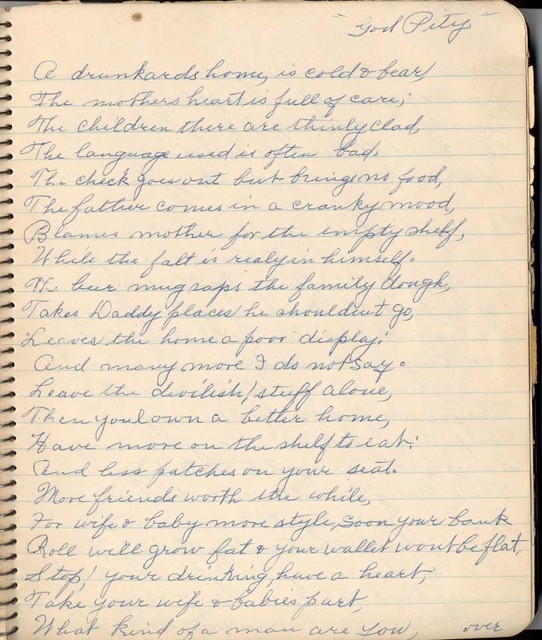 "God Pity"
A drunkards home, is cold & bear
The mothers heart is full of care;
The children there are thinly clad,
The language used is often bad.
The check goes out but brings no food,
The father comes in a cranky mood,
Blames mother for the empty shelf,
While the falt is realy in himself.
The beer mug saps the family dough,
Takes Daddy places he shouldent go,
Leaves the home a poor display;
And many more I do not say.
Leave the divilish! stuff alone,
Then youl own a better home,
Have more on the shelf to eat;
And less patches on your seat.
More friends worth the while,
For wife & baby more style, soon your bank
Roll will grow fat & your wallet wont be flat,
Stop! your drinking, have a heart,
Take your wife & babies part,
What kind of a man are you, over